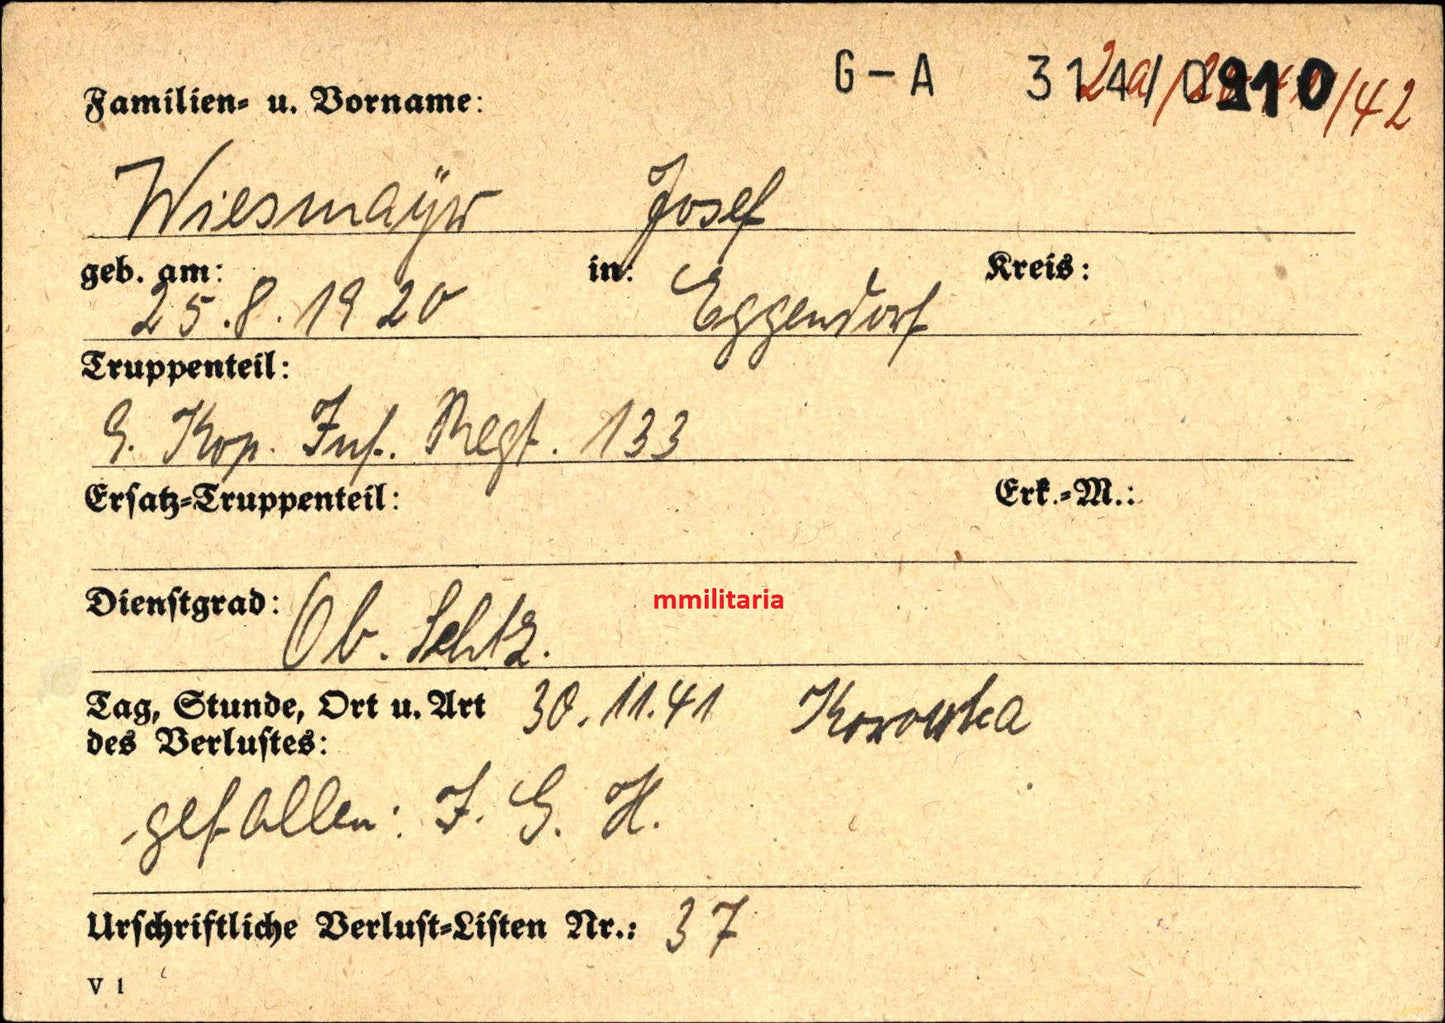 G-A 314/0910
Familien- u. Vorname:
Wiesmayr Josef
geb. am: in: Kreis:
25.8.1920 Eggendorf
Truppenteil:
9. Kop. Inf. Regt. 133
Ersatz-Truppenteil: Erk.-M.:
Dienstgrad: Ob. Schtz.
mmilitaria
Tag, Stunde, Ort u. Art 30.11.41
des Verlustes:
gefallen: I. G. H.
Urschriftliche Verlust-Listen Nr.: 37
V 1